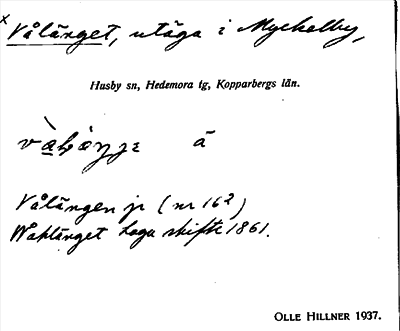 x Vålänget, utäga i Myckelby,
Husby sn, Hedemora tg, Kopparbergs län.
ā
Vålängen jr (nr 16²)
Wahlänget Laga skifte 1861.
OLLE HILLNER 1937.